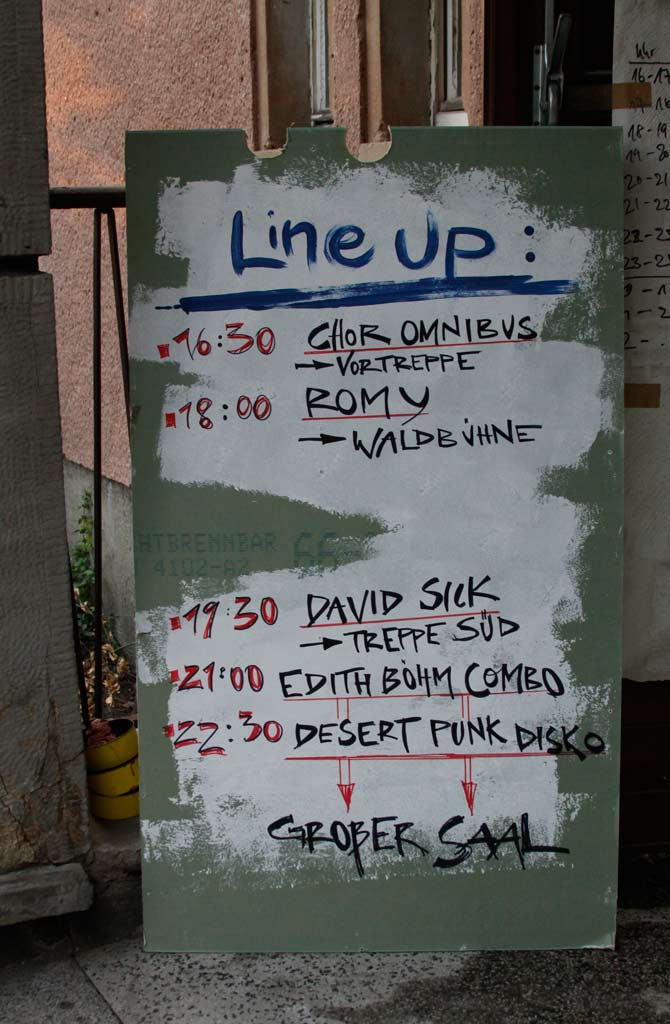 Line Up:
16:30 CHOR OMNIBUS
→ VORTREPPE
18:00 ROMY
→ WALDBÜHNE
HTBRENNBAR
4102-A2
19:30 DAVID SICK
→ TREPPE SÜD
21:00 EDITH BÖHM COMBO
22:30 DESERT PUNK DISKO
GROßER SAAL
Uhr
16-17
18-19
20-21
21-22